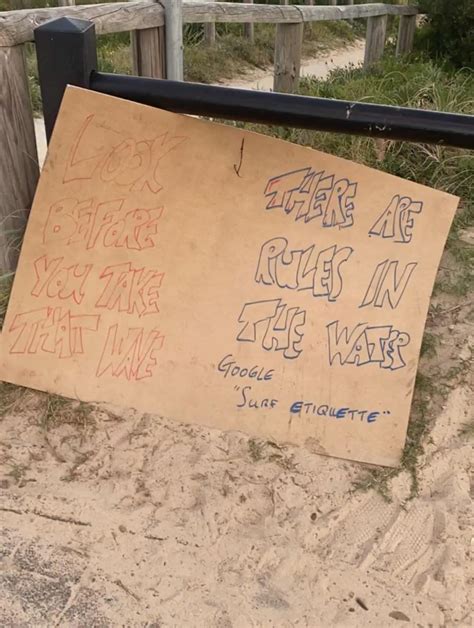 LOOK
BEFORE
YOU TAKE
THAT WAVE
THERE ARE
RULES IN
THE WATER
GOOGLE
"SURF ETIQUETTE"